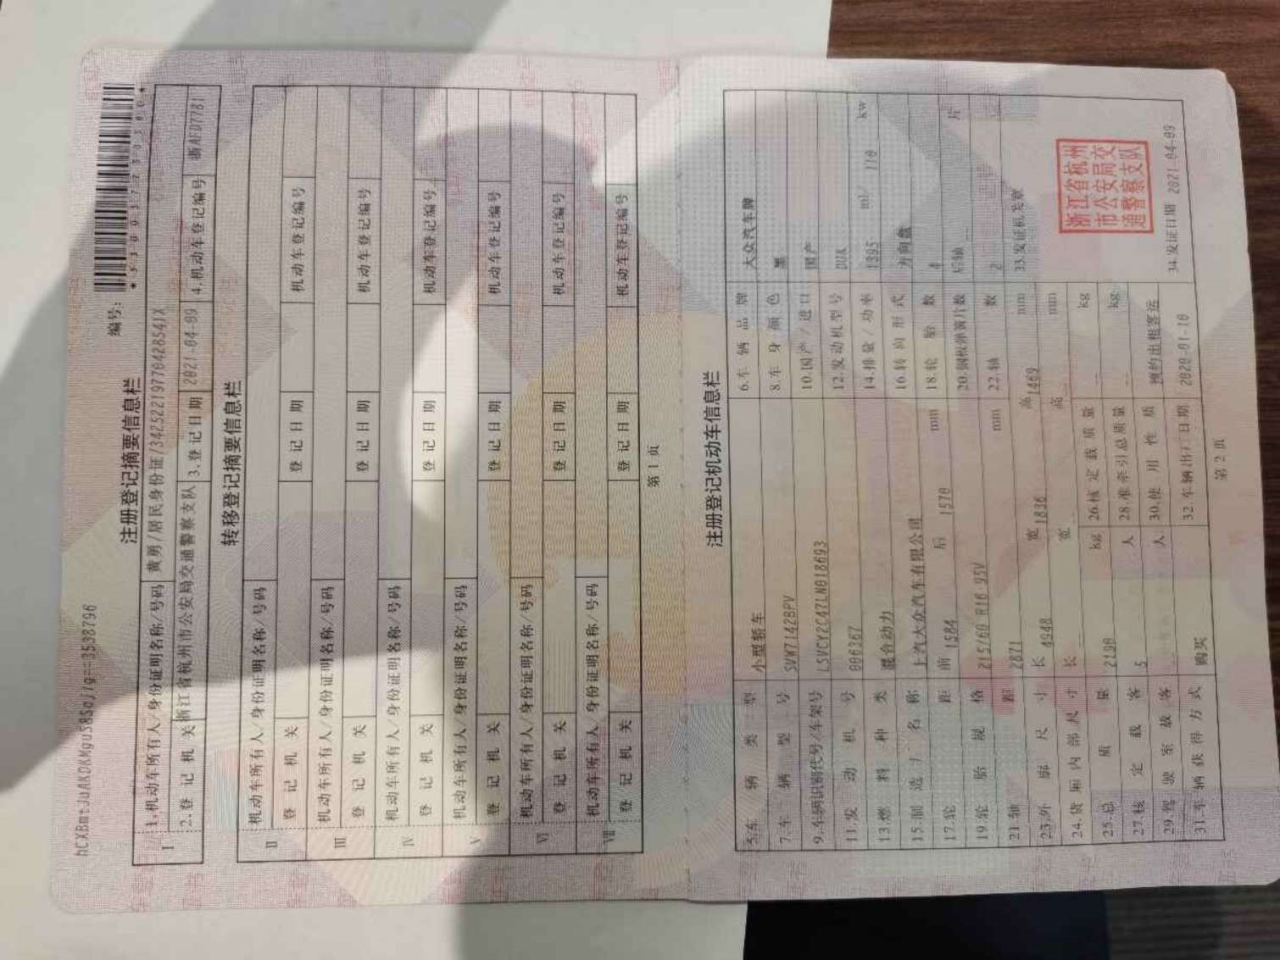 hCXBmtJuAKDKMguS8Sajlg==3538796
编号:
注册登记摘要信息栏
I 1.机动车所有人/身份证明名称/号码 黄勇/居民身份证/34252219770428541X
2.登记机关 浙江省杭州市公安局交通警察支队 3.登记日期 2021-04-09 4.机动车登记编号 浙AFD7781
转移登记摘要信息栏
II 机动车所有人/身份证明名称/号码
登记机关 登记日期 机动车登记编号
III 机动车所有人/身份证明名称/号码
登记机关 登记日期 机动车登记编号
IV 机动车所有人/身份证明名称/号码
登记机关 登记日期 机动车登记编号
V 机动车所有人/身份证明名称/号码
登记机关 登记日期 机动车登记编号
VI 机动车所有人/身份证明名称/号码
登记机关 登记日期 机动车登记编号
VII 机动车所有人/身份证明名称/号码
登记机关 登记日期 机动车登记编号
第 1 页
注册登记机动车信息栏
5.车辆类型 小型轿车 6.车辆品牌 大众汽车牌
7.车辆型号 SVW7142BPV 8.车身颜色 黑
9.车辆识别代号/车架号 LSVCY2C47LN018693 10.国产/进口 国产
11.发动机号 006367 12.发动机型号 DUK
13.燃料种类 混合动力 14.排量/功率 1395 ml/ 110 kw
15.制造厂名称 上汽大众汽车有限公司 16.转向形式 方向盘
17.轮距 前 1584 后 1570 mm 18.轮胎数 4
19.轮胎规格 215/60 R16 95V 20.钢板弹簧片数 后轴 片
21.轴距 2871 mm 22.轴数 2
23.外廓尺寸 长 4948 宽 1836 高 1469 mm 33.发证机关章
24.货厢内部尺寸 长 宽 高 mm
25.总质量 2190 kg 26.核定载质量 kg
27.核定载客 5 人 28.准牵引总质量 kg
29.驾驶室载客 人 30.使用性质 预约出租客运
31.车辆获得方式 购买 32.车辆出厂日期 2020-01-10 34.发证日期 2021-04-09
浙江省杭州
市公安局交
通警察支队
第 2 页